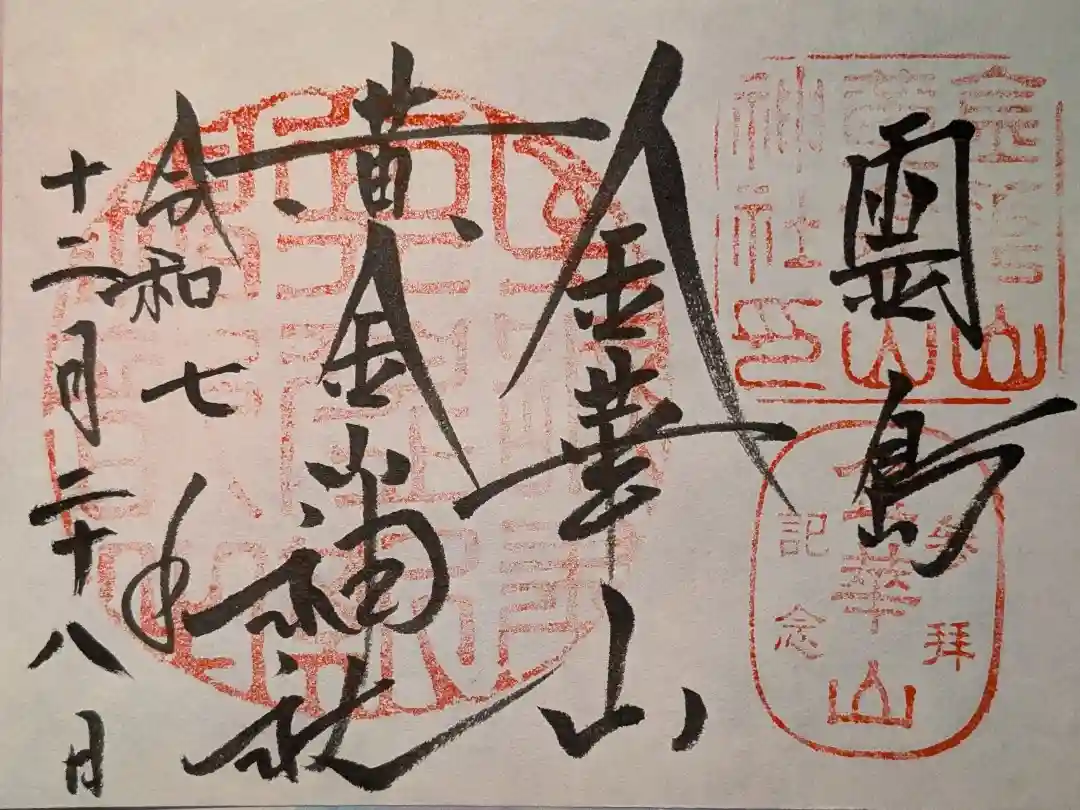 霊島
金華山
黄金山神社
令和七年
十二月二十八日
金華山
黄金山
神社印
参拝
金華山
記念